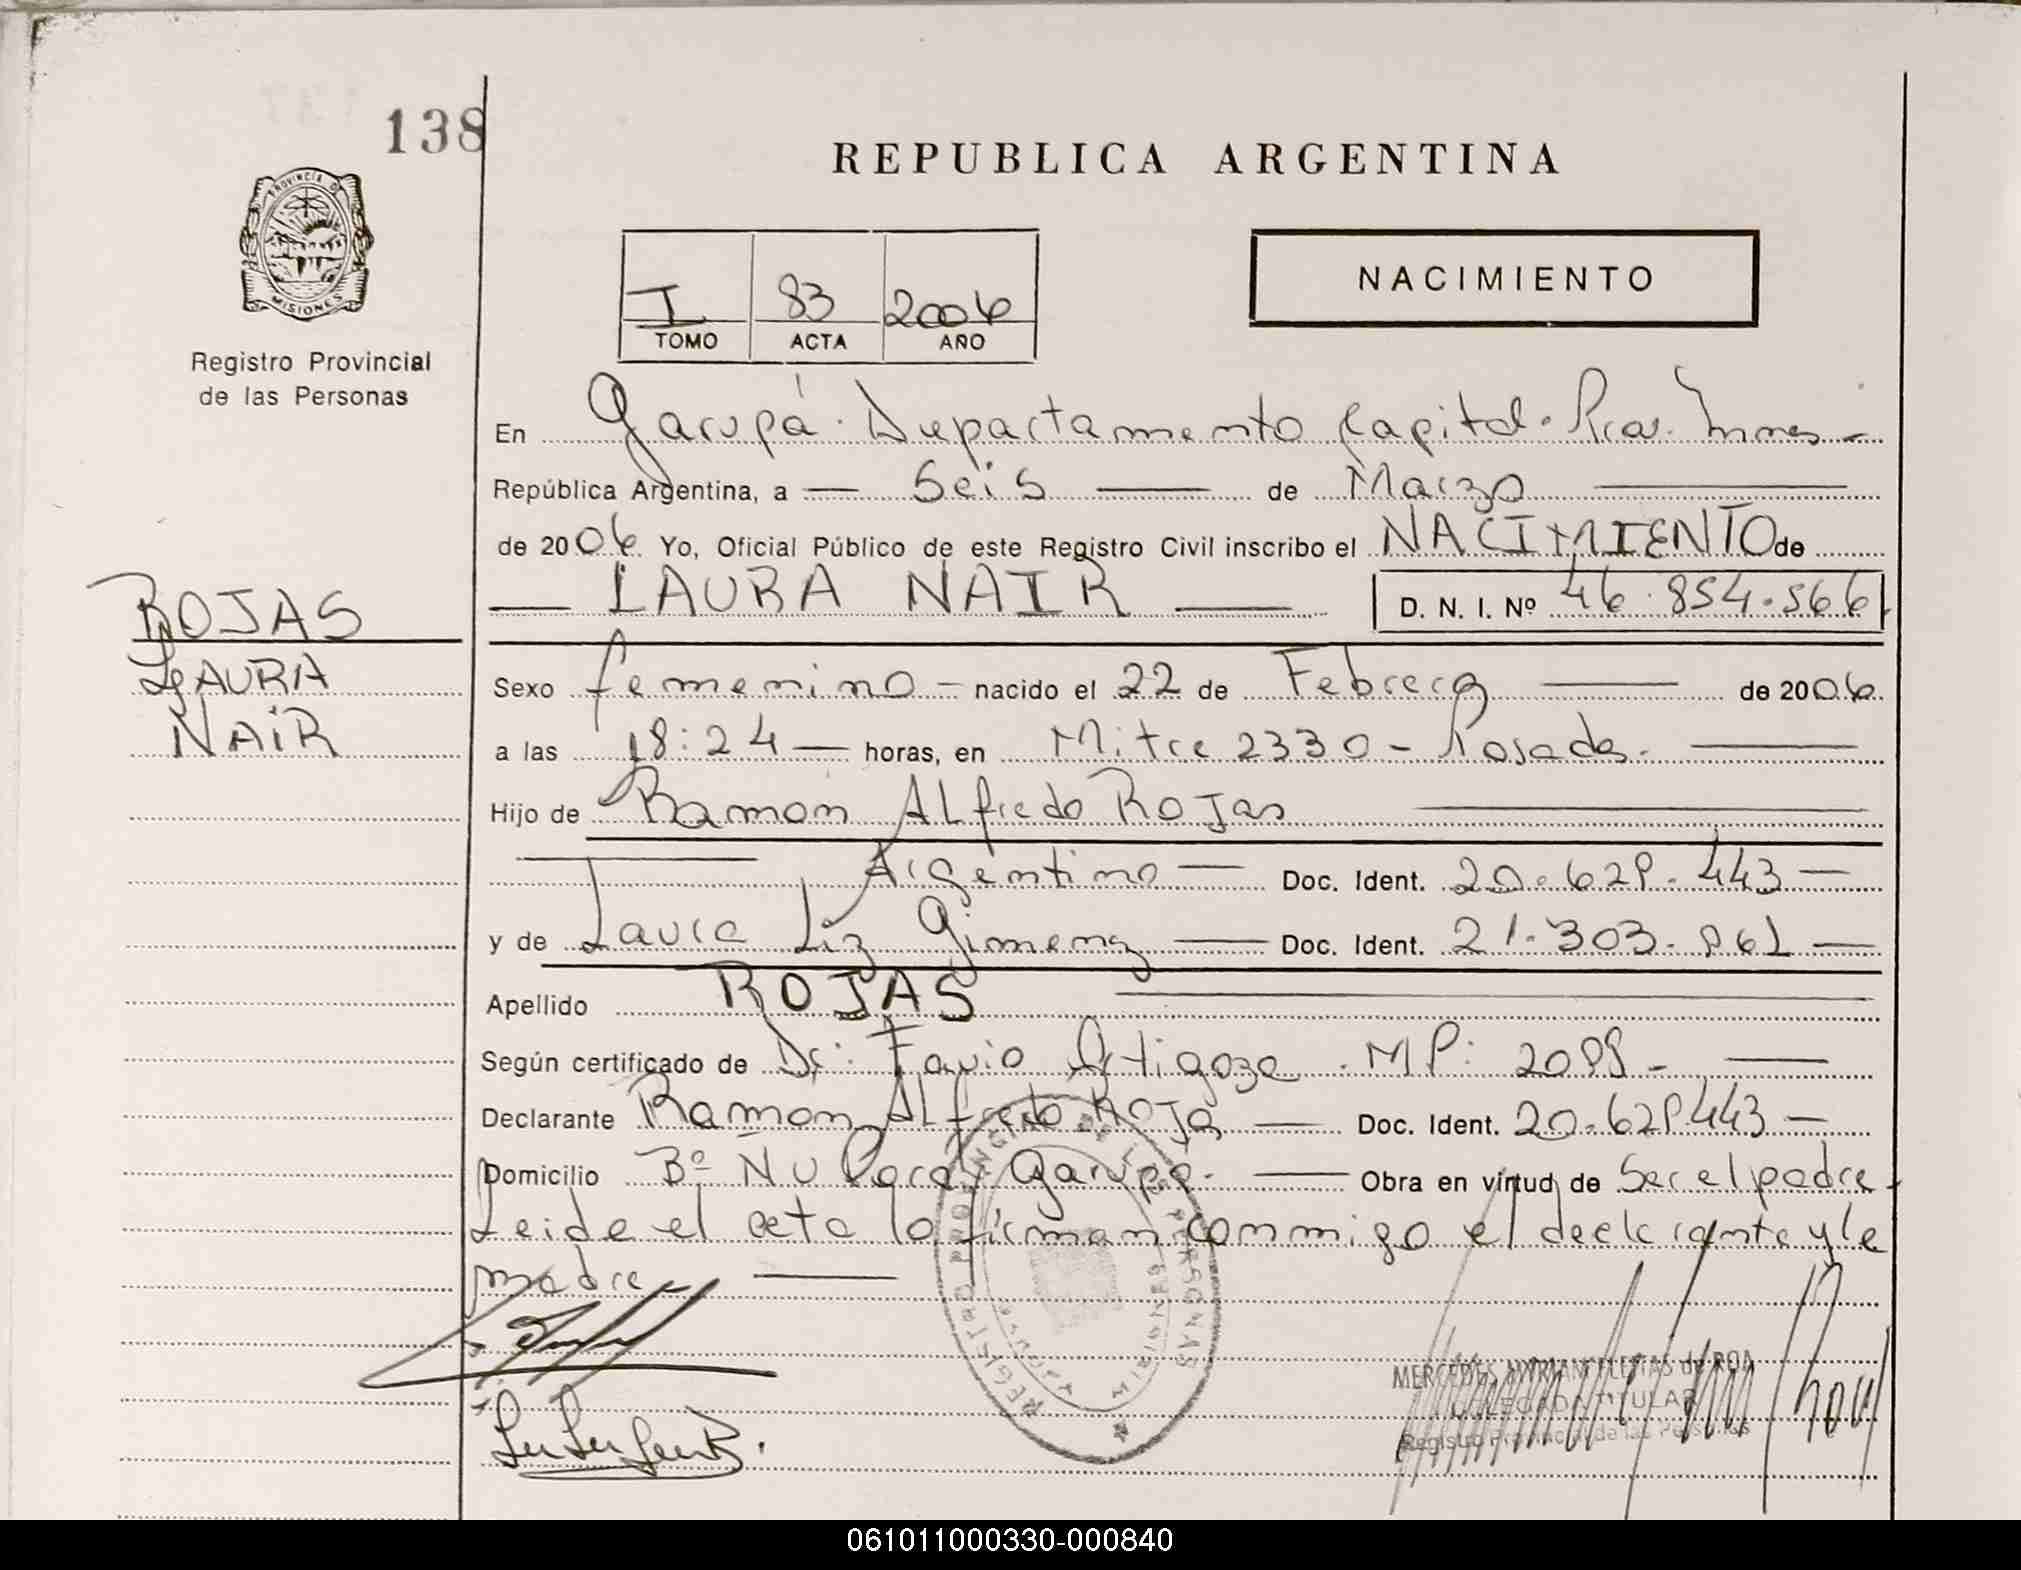 138
REPUBLICA ARGENTINA
PROVINCIA DE MISIONES
Registro Provincial
de las Personas
I 83 2006
TOMO ACTA AÑO
NACIMIENTO
En Garupá. Departamento Capital. Pcia. Mnes -
República Argentina, a — Seis — de Marzo —
de 2006. Yo, Oficial Público de este Registro Civil inscribo el NACIMIENTO de
— LAURA NAIR — D. N. I. Nº 46.854.566
ROJAS
LAURA
NAIR
Sexo femenino - nacido el 22 de Febrero — de 2006
a las 18:24 — horas, en Mitre 2330 - Posadas. —
Hijo de Ramon ALfredo Rojas —
— Argentino — Doc. Ident. 20.628.443 —
y de Laura Liz Gimenez — Doc. Ident. 21.303.861 —
Apellido ROJAS —
Según certificado de Dr: Favio Artigoza. MP: 2088 - —
Declarante Ramon ALfredo Rojas — Doc. Ident. 20.628.443 —
Domicilio Bº Ñu Pora, Garupa. — Obra en virtud de Ser el padre.
Leida el acta la firman conmigo el declarante y la
madre —
REGISTRO PROVINCIAL DE LAS PERSONAS
MERCEDES MYRIAN FLEITAS de ROA
DELEGADA TITULAR
Registro Provincial de las Personas
061011000330-000840